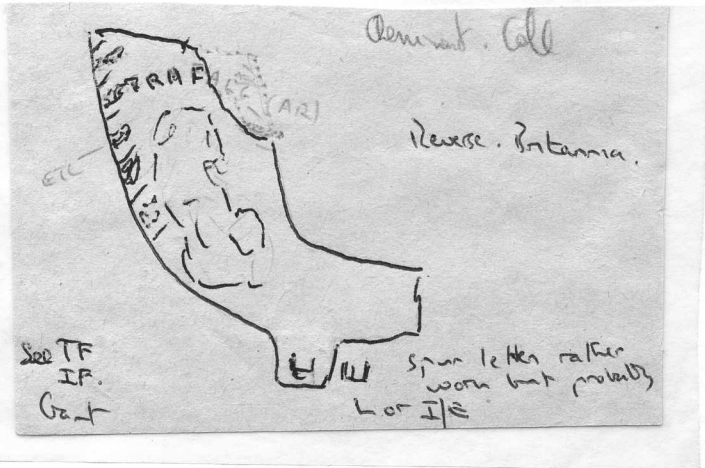 Coll
TRAF
(AR)
Reverse. Britannia.
ETC
See TF
IF.
E E
spur letters rather
worn but probably
L or I/E